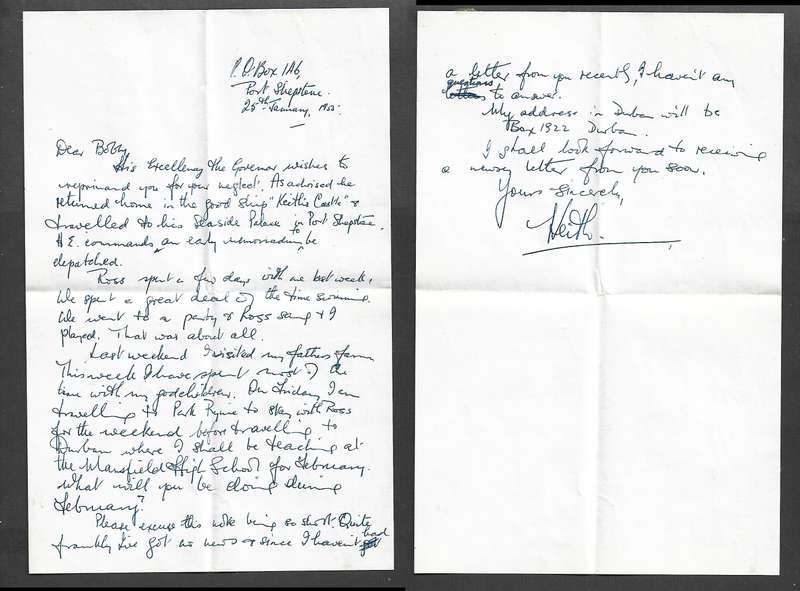 P.O. Box 116,
Port Shepstone.
25th January, 1955.
Dear Bobby,
His Excellency the Governor wishes to
reprimand you for your neglect. As advised he
returned home in the good ship "Keith's Castle" &
travelled to his Seaside Palace in Port Shepstone.
H.E. commands an early memorandum to be
depatched.
Ross spent a few days with me last week.
We spent a great deal of the time swimming.
We went to a party & Ross sang & I
played. That was about all.
Last weekend I visited my fathers farm.
This week I have spent most of the
time with my godchildren. On Friday I am
travelling to Park Rynie to stay with Ross
for the weekend before travelling to
Durban where I shall be teaching at
the Mansfield High School for February.
What will you be doing during
February?
Please excuse this note being so short. Quite
frankly I've got no news & since I haven't had
a letter from you recently, I haven't any
questions to answer.
My address in Durban will be
Box 1922 Durban.
I shall look forward to receiving
a newsy letter from you soon.
Yours sincerely,
Keith.